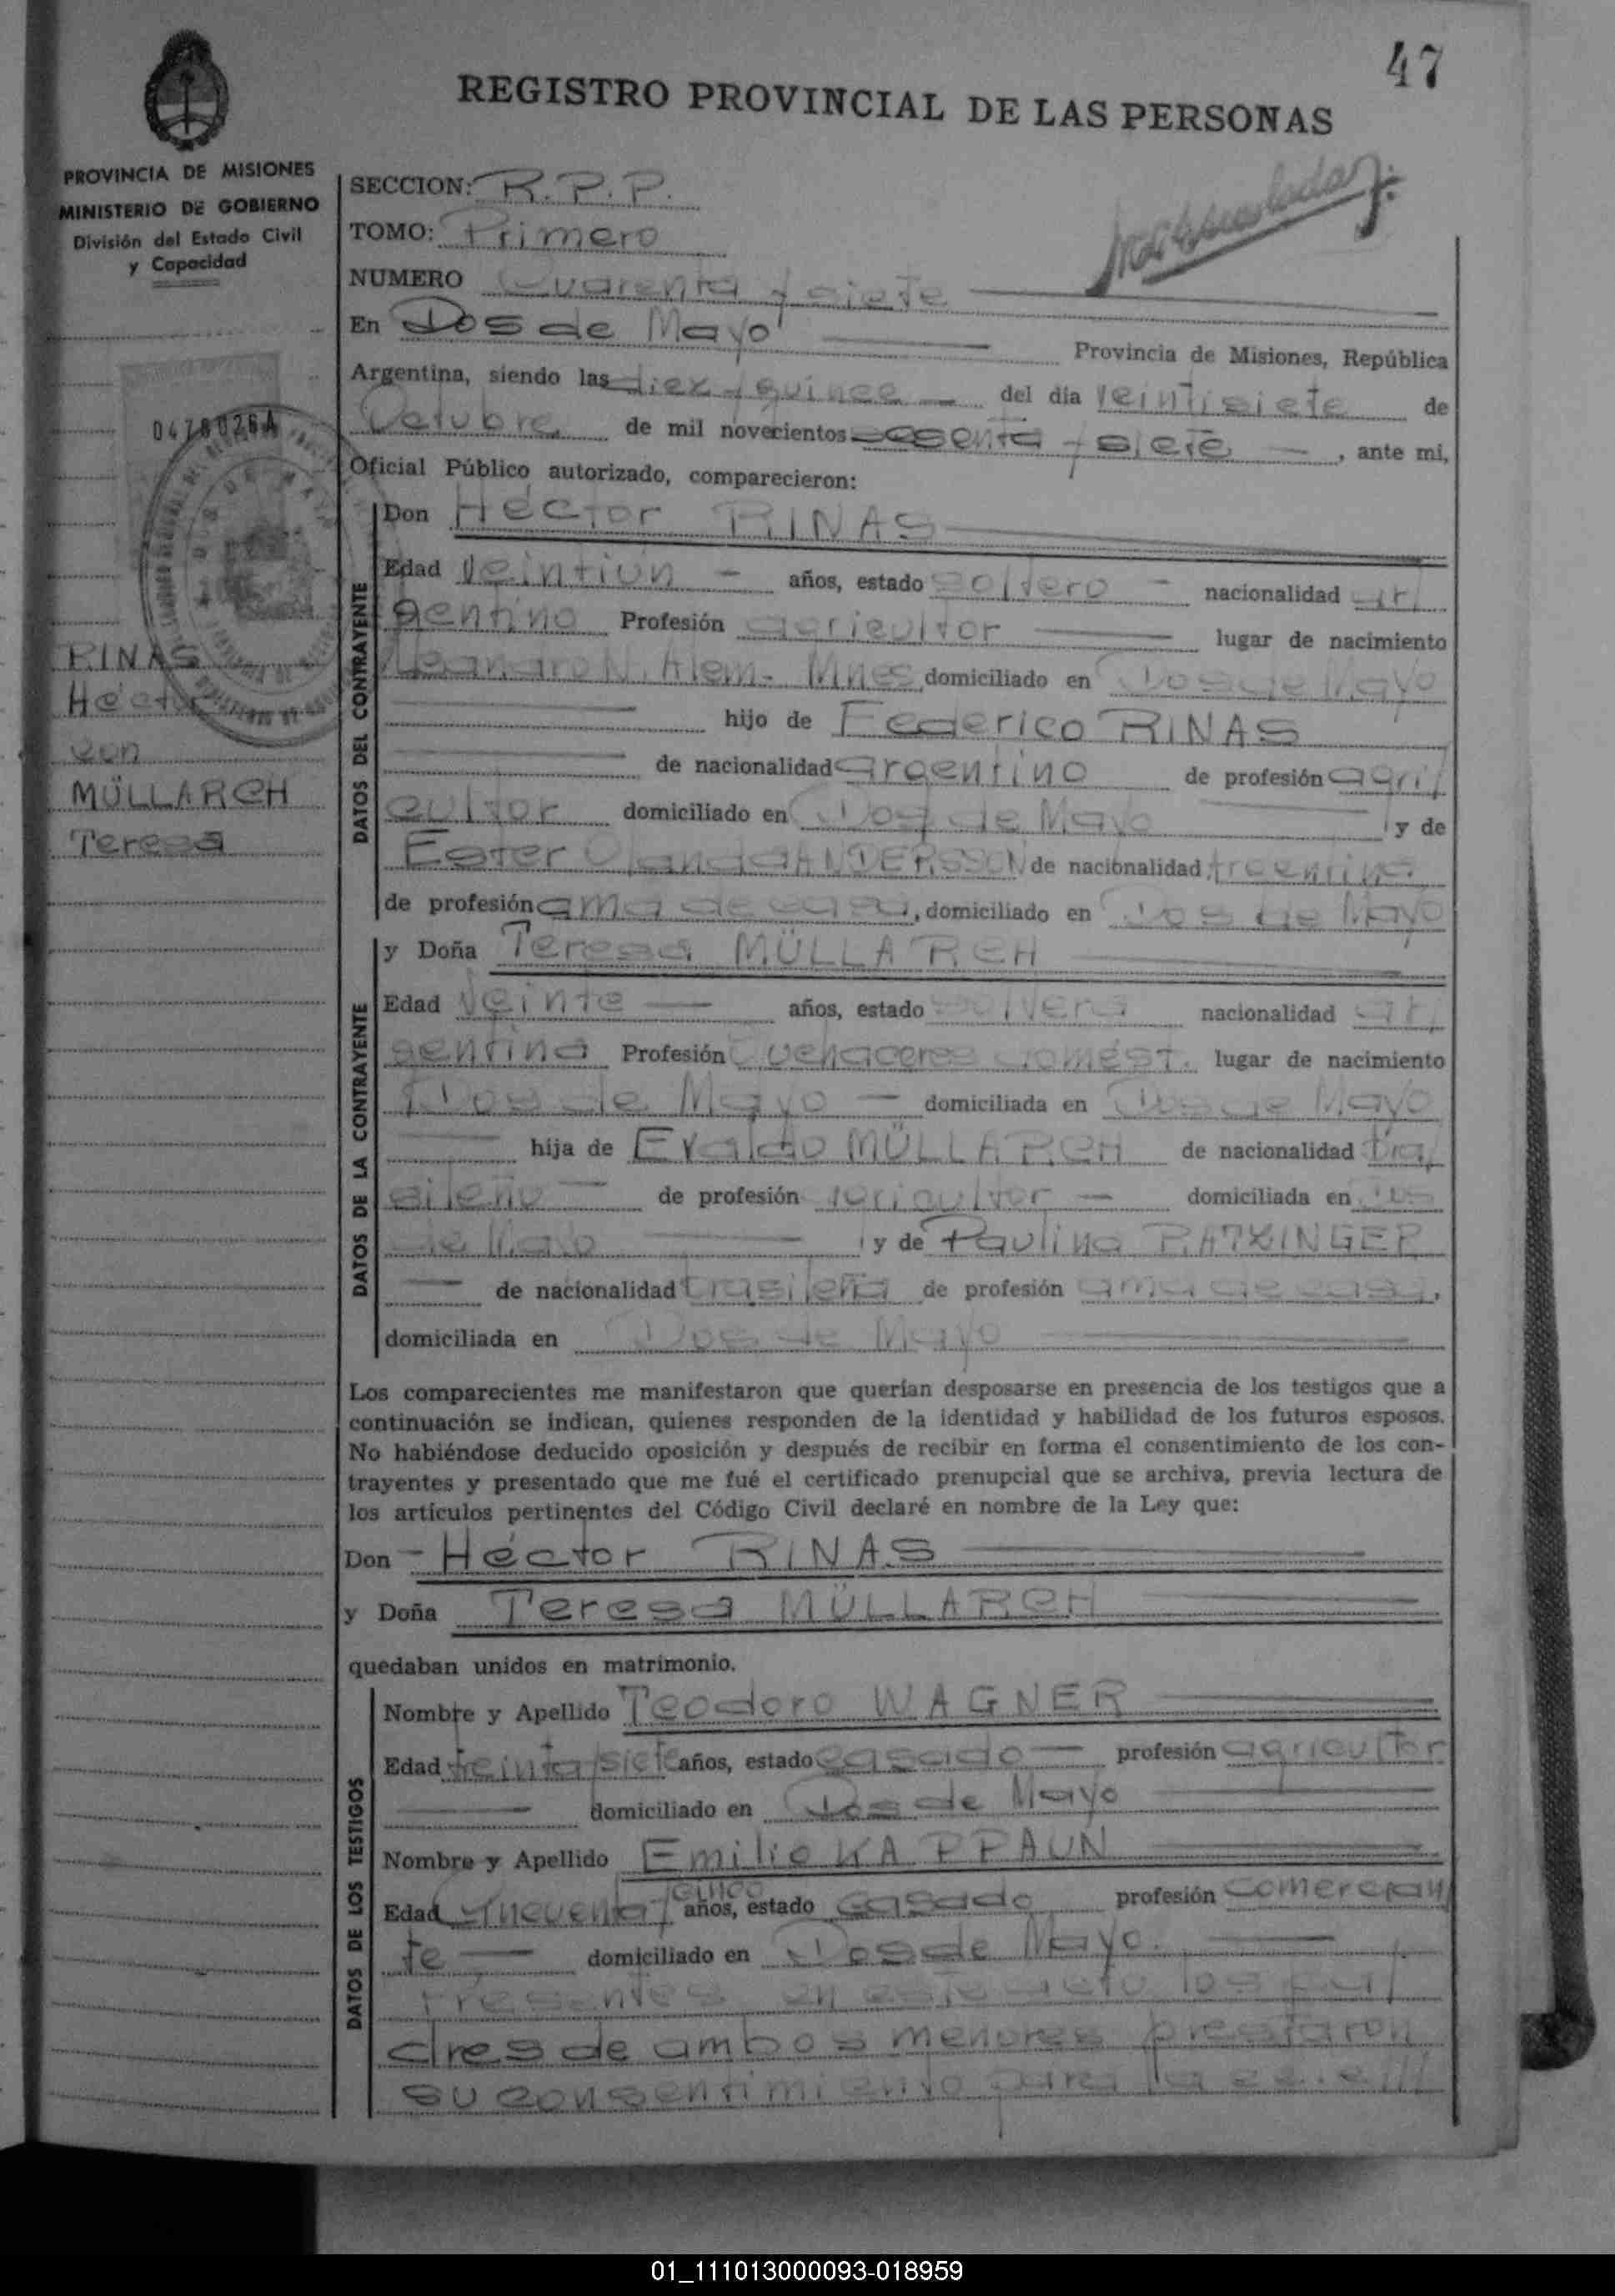 47
REGISTRO PROVINCIAL DE LAS PERSONAS
PROVINCIA DE MISIONES
MINISTERIO DE GOBIERNO
División del Estado Civil
y Capacidad
SECCION: R.P.P.
TOMO: Primero
NUMERO Cuarenta y siete
En Dos de Mayo Provincia de Misiones, República
Argentina, siendo las diez y quince del dia veintisiete de
Octubre de mil novecientos sesenta y siete, ante mi,
Oficial Público autorizado, comparecieron:
0478026A
RINAS
Héctor
con
MÜLLARCH
Teresa
DATOS DEL CONTRAYENTE
Don Héctor RINAS
Edad veintiun años, estado soltero nacionalidad ar/
gentino Profesión agricultor lugar de nacimiento
Leandro N. Alem. Mnes domiciliado en Dos de Mayo
hijo de Federico RINAS
de nacionalidad argentino de profesión agri/
cultor domiciliado en Dos de Mayo y de
Ester ANDERSSON de nacionalidad argentina
de profesión ama de casa, domiciliado en Dos de Mayo
DATOS DE LA CONTRAYENTE
y Doña Teresa MÜLLARCH
Edad veinte años, estado soltera nacionalidad ar/
gentina Profesión Quehaceres domést. lugar de nacimiento
Dos de Mayo domiciliada en Dos de Mayo
hija de Evaldo MÜLLARCH de nacionalidad bra/
sileño de profesión agricultor domiciliada en Dos
de Mayo y de Paulina RATZINGER
de nacionalidad brasileña de profesión ama de casa,
domiciliada en Dos de Mayo
Los comparecientes me manifestaron que querían desposarse en presencia de los testigos que a
continuación se indican, quienes responden de la identidad y habilidad de los futuros esposos.
No habiéndose deducido oposición y después de recibir en forma el consentimiento de los con-
trayentes y presentado que me fué el certificado prenupcial que se archiva, previa lectura de
los artículos pertinentes del Código Civil declaré en nombre de la Ley que:
Don Héctor RINAS
y Doña Teresa MÜLLARCH
quedaban unidos en matrimonio.
DATOS DE LOS TESTIGOS
Nombre y Apellido Teodoro WAGNER
Edad treinta y siete años, estado casado profesión agricultor
domiciliado en Dos de Mayo
Nombre y Apellido Emilio KAPPAUN
Edad Cincuenta y cinco años, estado casado profesión comercian
te domiciliado en Dos de Mayo.
Presentes en este acto los pa/
dres de ambos menores prestaron
su consentimiento para la
01_111013000093-018959